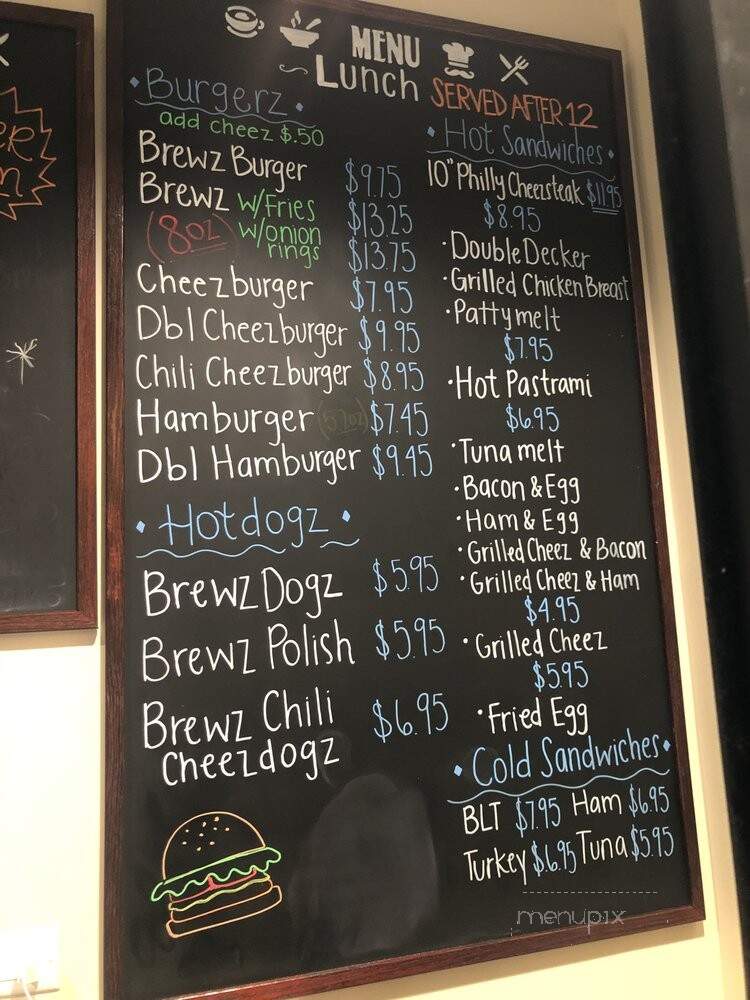 MENU
Lunch SERVED AFTER 12
Burgerz
add cheez $.50
Brewz Burger $9.75
Brewz w/Fries $13.25
(8oz) w/onion rings $13.75
Cheezburger $7.95
Dbl Cheezburger $9.95
Chili Cheezburger $8.95
Hamburger $7.45
Dbl Hamburger $9.45
Hotdogz
Brewz Dogz $5.95
Brewz Polish $5.95
Brewz Chili $6.95
Cheezdogz
Hot Sandwiches
10" Philly Cheezsteak $11.95
$8.95
Double Decker
Grilled Chicken Breast
Patty melt
$7.95
Hot Pastrami
$6.95
Tuna melt
Bacon & Egg
Ham & Egg
Grilled Cheez & Bacon
Grilled Cheez & Ham
$4.95
Grilled Cheez
$5.95
Fried Egg
Cold Sandwiches
BLT $7.95 Ham $6.95
Turkey $6.95 Tuna $5.95
menupix